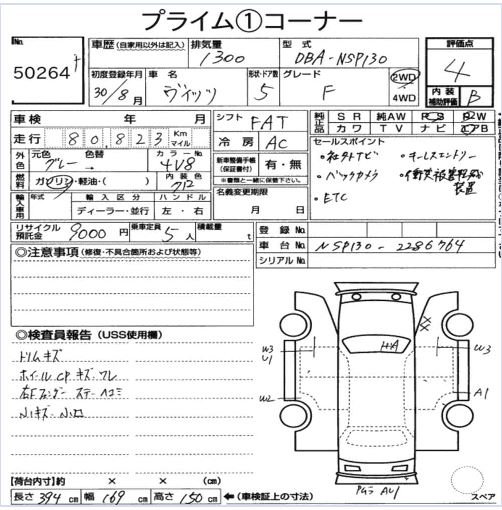 プライム①コーナー
No.
50264
車歴 (自家用以外は記入)
排気量
1300
型式
DBA-NSP130
評価点
4
初度登録年月
30/8月
車名
ヴィッツ
形状・ドア数
5
グレード
F
2WD
4WD
内装
補助評価
B
車検 年 月
シフト
FAT
純正品
SR 純AW PS PW
カワ TV ナビ エアB
走行
80,823
Km
マイル
冷房
AC
セールスポイント
・社外ナビ ・キーレスエントリー
・バックカメラ
装置
・ETC
外色
元色
グレー
色替
→
カラーNo.
4V8
新車整備手帳
(保証書付)
有・無
※整備手帳と一緒に保管下さい。
燃料
ガソリン・軽油・( )
内装色
クロ
名義変更期限
月 日
輸入車用
年式
輸入区分
ハンドル
ディーラー・並行
左・右
リサイクル
預託金
9000円
乗車定員
5人
積載量
t
登録No.
車台No.
NSP130-2286764
シリアルNo.
◎注意事項 (修復・不具合箇所および状態等)
◎検査員報告 (USS使用欄)
トリムキズ
ホイールCPキズ・ワレ
右Fフェンダーステーヘコミ
小キズ・小凹
W3
U1
W2
HA
XX
W3
A1
PGラ AU1
スペア
【荷台内寸】約 × × (cm)
長さ 394cm 幅 169cm 高さ 150cm ←(車検証上の寸法)